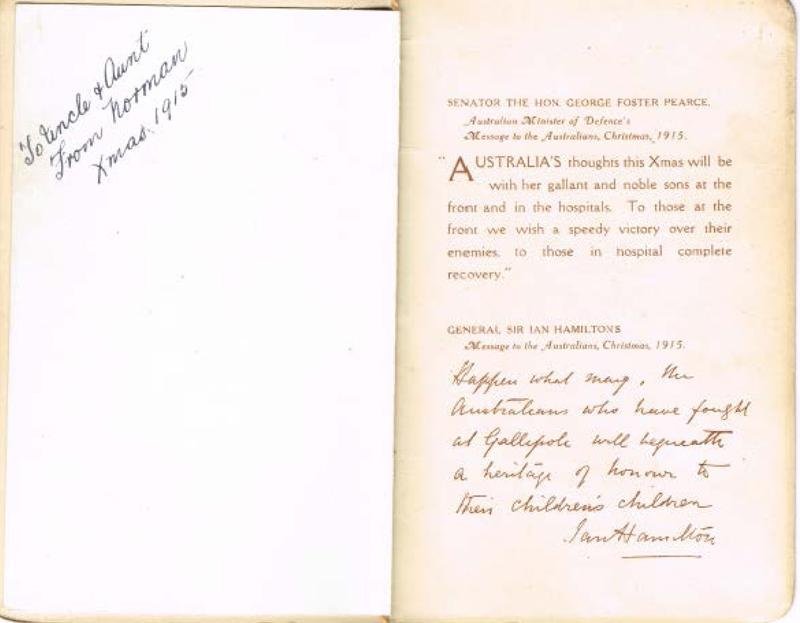 To Uncle & Aunt
From Norman
Xmas. 1915
SENATOR THE HON. GEORGE FOSTER PEARCE,
Australian Minister of Defence's
Message to the Australians, Christmas, 1915.
"AUSTRALIA'S thoughts this Xmas will be
with her gallant and noble sons at the
front and in the hospitals. To those at the
front we wish a speedy victory over their
enemies, to those in hospital complete
recovery."
GENERAL SIR IAN HAMILTONS
Message to the Australians, Christmas, 1915.
Happen what may, the
Australians who have fought
at Gallipoli will bequeath
a heritage of honour to
their children's children
Ian Hamilton